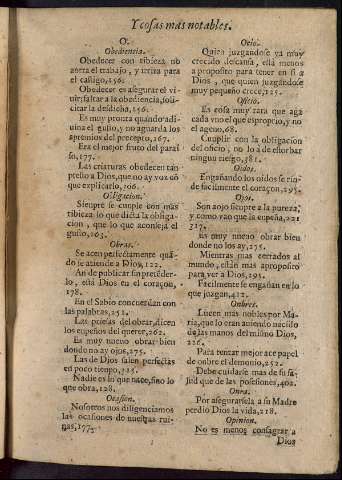 Y cosas mas notables.
O.
Obediencia.
Obedecer con tibieza no
ahorra el trabajo, y tira para
el castigo, 156.
Obedecer es asegurar el vi-
faltar a la obediencia, soli-
citar la desdicha, 156.
Es muy pronta quando adi-
uina el gusto, y no aguarda los
apremios del precepto, 167.
Era el mejor fruto del parai
so, 177.
Las criaturas obedecen tan
presto a Dios, que no ay voz cō
que explicarlo, 106.
Obligacion.
Siempre se cumple con mas
tibieza lo que dicta la obliga-
cion, que lo que aconseja el
gusto, 203.
Obras.
Se acen perfectamente quā-
do se atiende a Dios, 122.
An de publicar sin preceder-
lo, està Dios en el coraçon,
178.
En el Sabio concuerdan con
las palabras, 252.
Las prisas del obrar, dicen
los empeños del querer, 262.
Es muy nueuo obrar bien
donde no ay ojos, 275.
Las de Dios salen perfectas
en poco tiempo, 325.
Nadie es lo que nace, sino lo
que obra, 128.
Ocasion.
Nosotros nos diligenciamos
las ocasiones de nuestras rui-
nas, 177.
Ocio.
Quien juzgandose ya muy
crecido descansa, està menos
a proposito para tener en si a
Dios, que quien juzgandose
muy pequeño crece, 125.
Oficio.
Es cosa muy rara que aga
cada vno el que es proprio, y no
el ageno, 68.
Cumplir con la obligacion
del oficio, no lo à de estorbar
ningun riesgo, 381.
Oidos.
Engañando los oidos se rin-
de facilmente el coraçon, 295.
Ojos.
Son aojo siempre a la pureza,
y como vào que la espeña, 221
217.
Es muy nueuo obrar bien
donde no los ay, 275.
Mientras mas cerrados al
mundo, estàn mas aproposito
para ver a Dios, 295.
Facilmente se engañan en lo
que juzgan, 412.
Onbres.
Lucen mas nobles por Ma-
ria, que lo eran auiendo nacido
de las manos del mismo Dios,
226.
Para tentar mejor ace papel
de onbre el demonio, 252.
Debe cuidarse mas de su sa-
lud que de las posesiones, 402.
Onra.
Por asegurarsela a su Madre
perdio Dios la vida, 218.
Opinion.
No es menos consagrar a
Dios